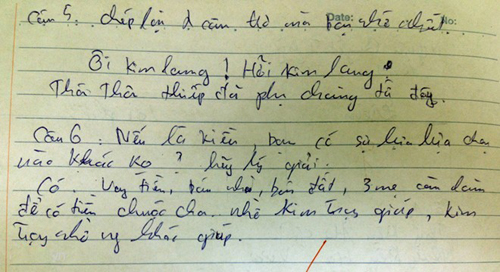 Câu 5: chép lại 2 câu thơ mà bạn nhớ nhất.
Date: No:
Ôi kim lang! Hỡi kim lang
Thôi Thôi thiếp đã phụ chàng từ đây.
Câu 6: Nếu là kiều, bạn có sự lựa chọn
nào khác ko? hãy lý giải.
Có. Vay tiền, bán nhà, bán đất, 3 mẹ con làm
để có tiền chuộc cha. nhờ kim Trọng giúp, kim
Trọng nhờ ng khác giúp.